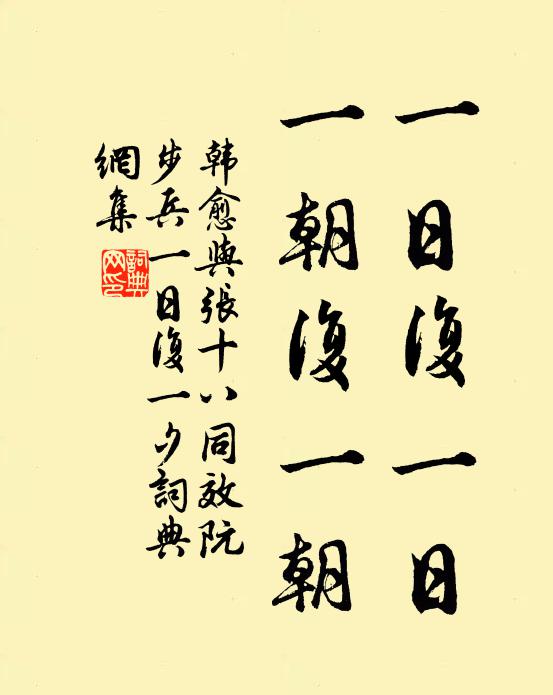 一日復一日
一朝復一朝
韩愈與張十八同效阮
步兵一日復一夕詞典
網集
詞典
网印